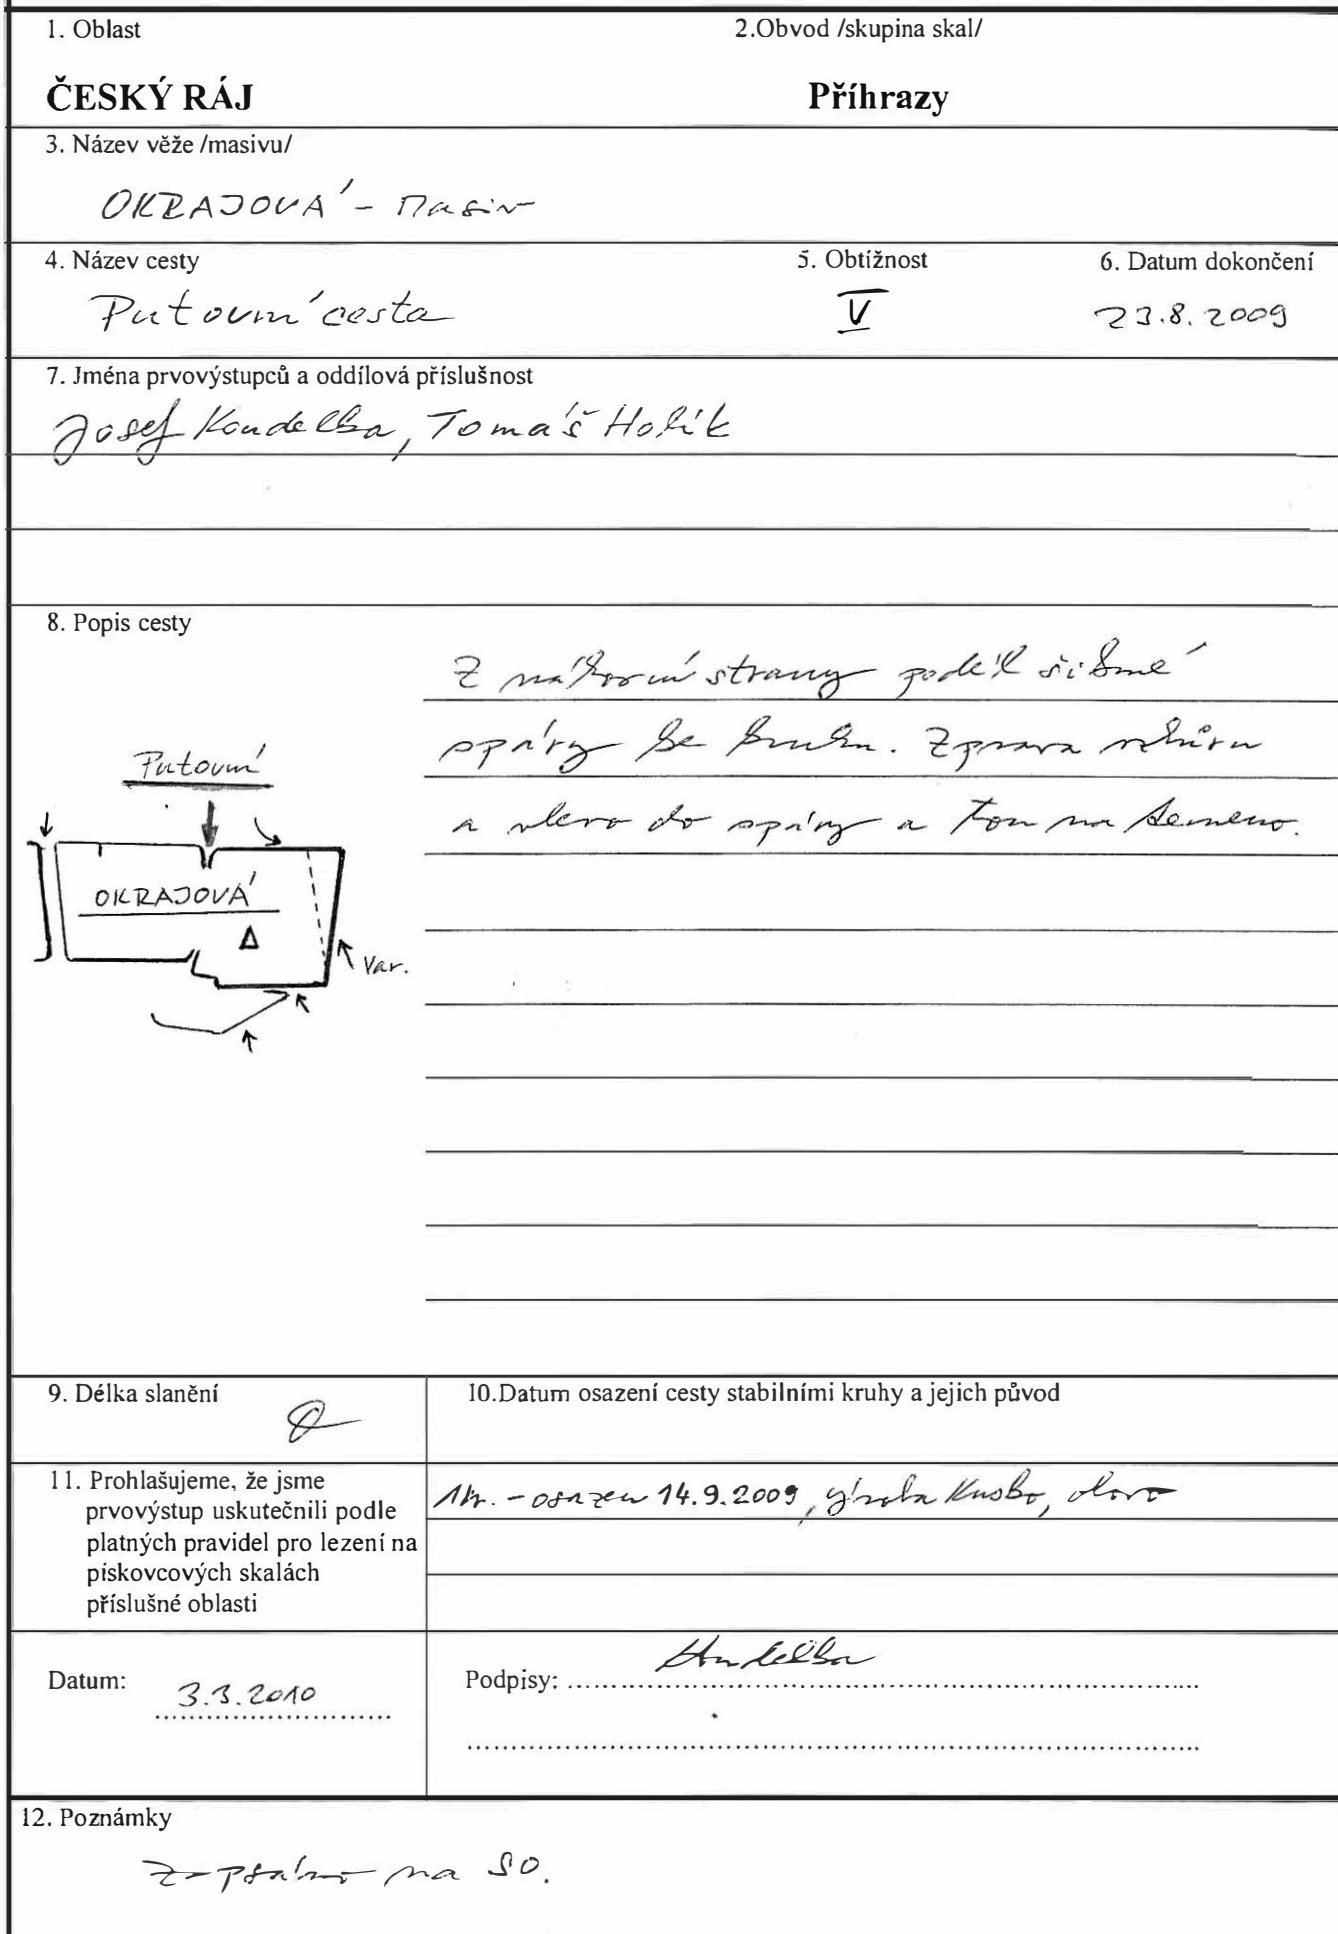 1. Oblast
2.Obvod /skupina skal/
ČESKÝ RÁJ
Příhrazy
3. Název věže /masivu/
OKRAJOVÁ - masiv
4. Název cesty
5. Obtížnost
6. Datum dokončení
Putovní cesta
V
23.8.2009
7. Jména prvovýstupců a oddílová příslušnost
Josef Koudelka, Tomáš Holík
8. Popis cesty
Z náhorní strany podél šikmé
spáry ke kruhu. Zprava vzhůru
a vlevo do spáry a tou na temeno.
Putovní
OKRAJOVÁ
Var.
9. Délka slanění
10.Datum osazení cesty stabilními kruhy a jejich původ
11. Prohlašujeme, že jsme
prvovýstup uskutečnili podle
platných pravidel pro lezení na
pískovcových skalách
příslušné oblasti
1kr. - osazen 14.9.2009, výroba olovo
Datum: 3.3.2010
Podpisy: Koudelka
12. Poznámky
Zapsáno na SO.